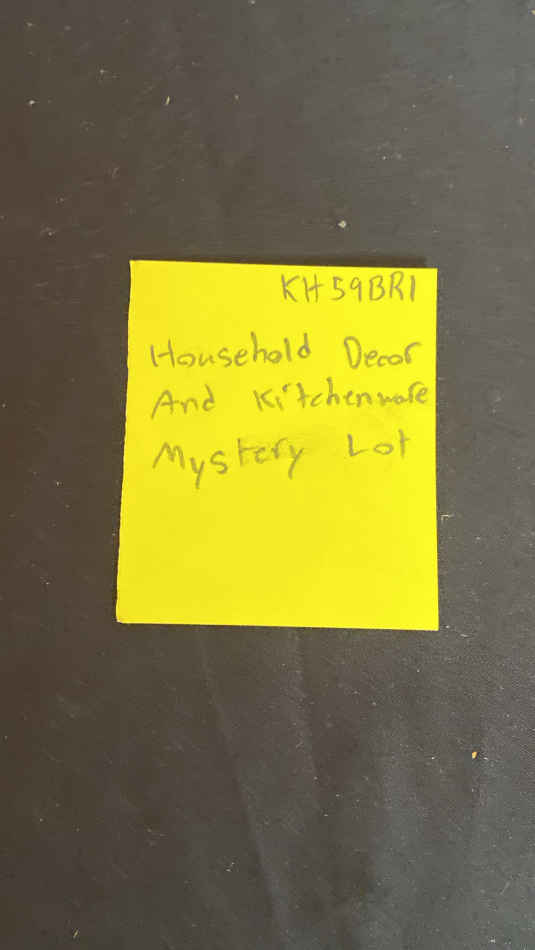 KH59BR1
Household Decor
And Kitchenware
Mystery Lot